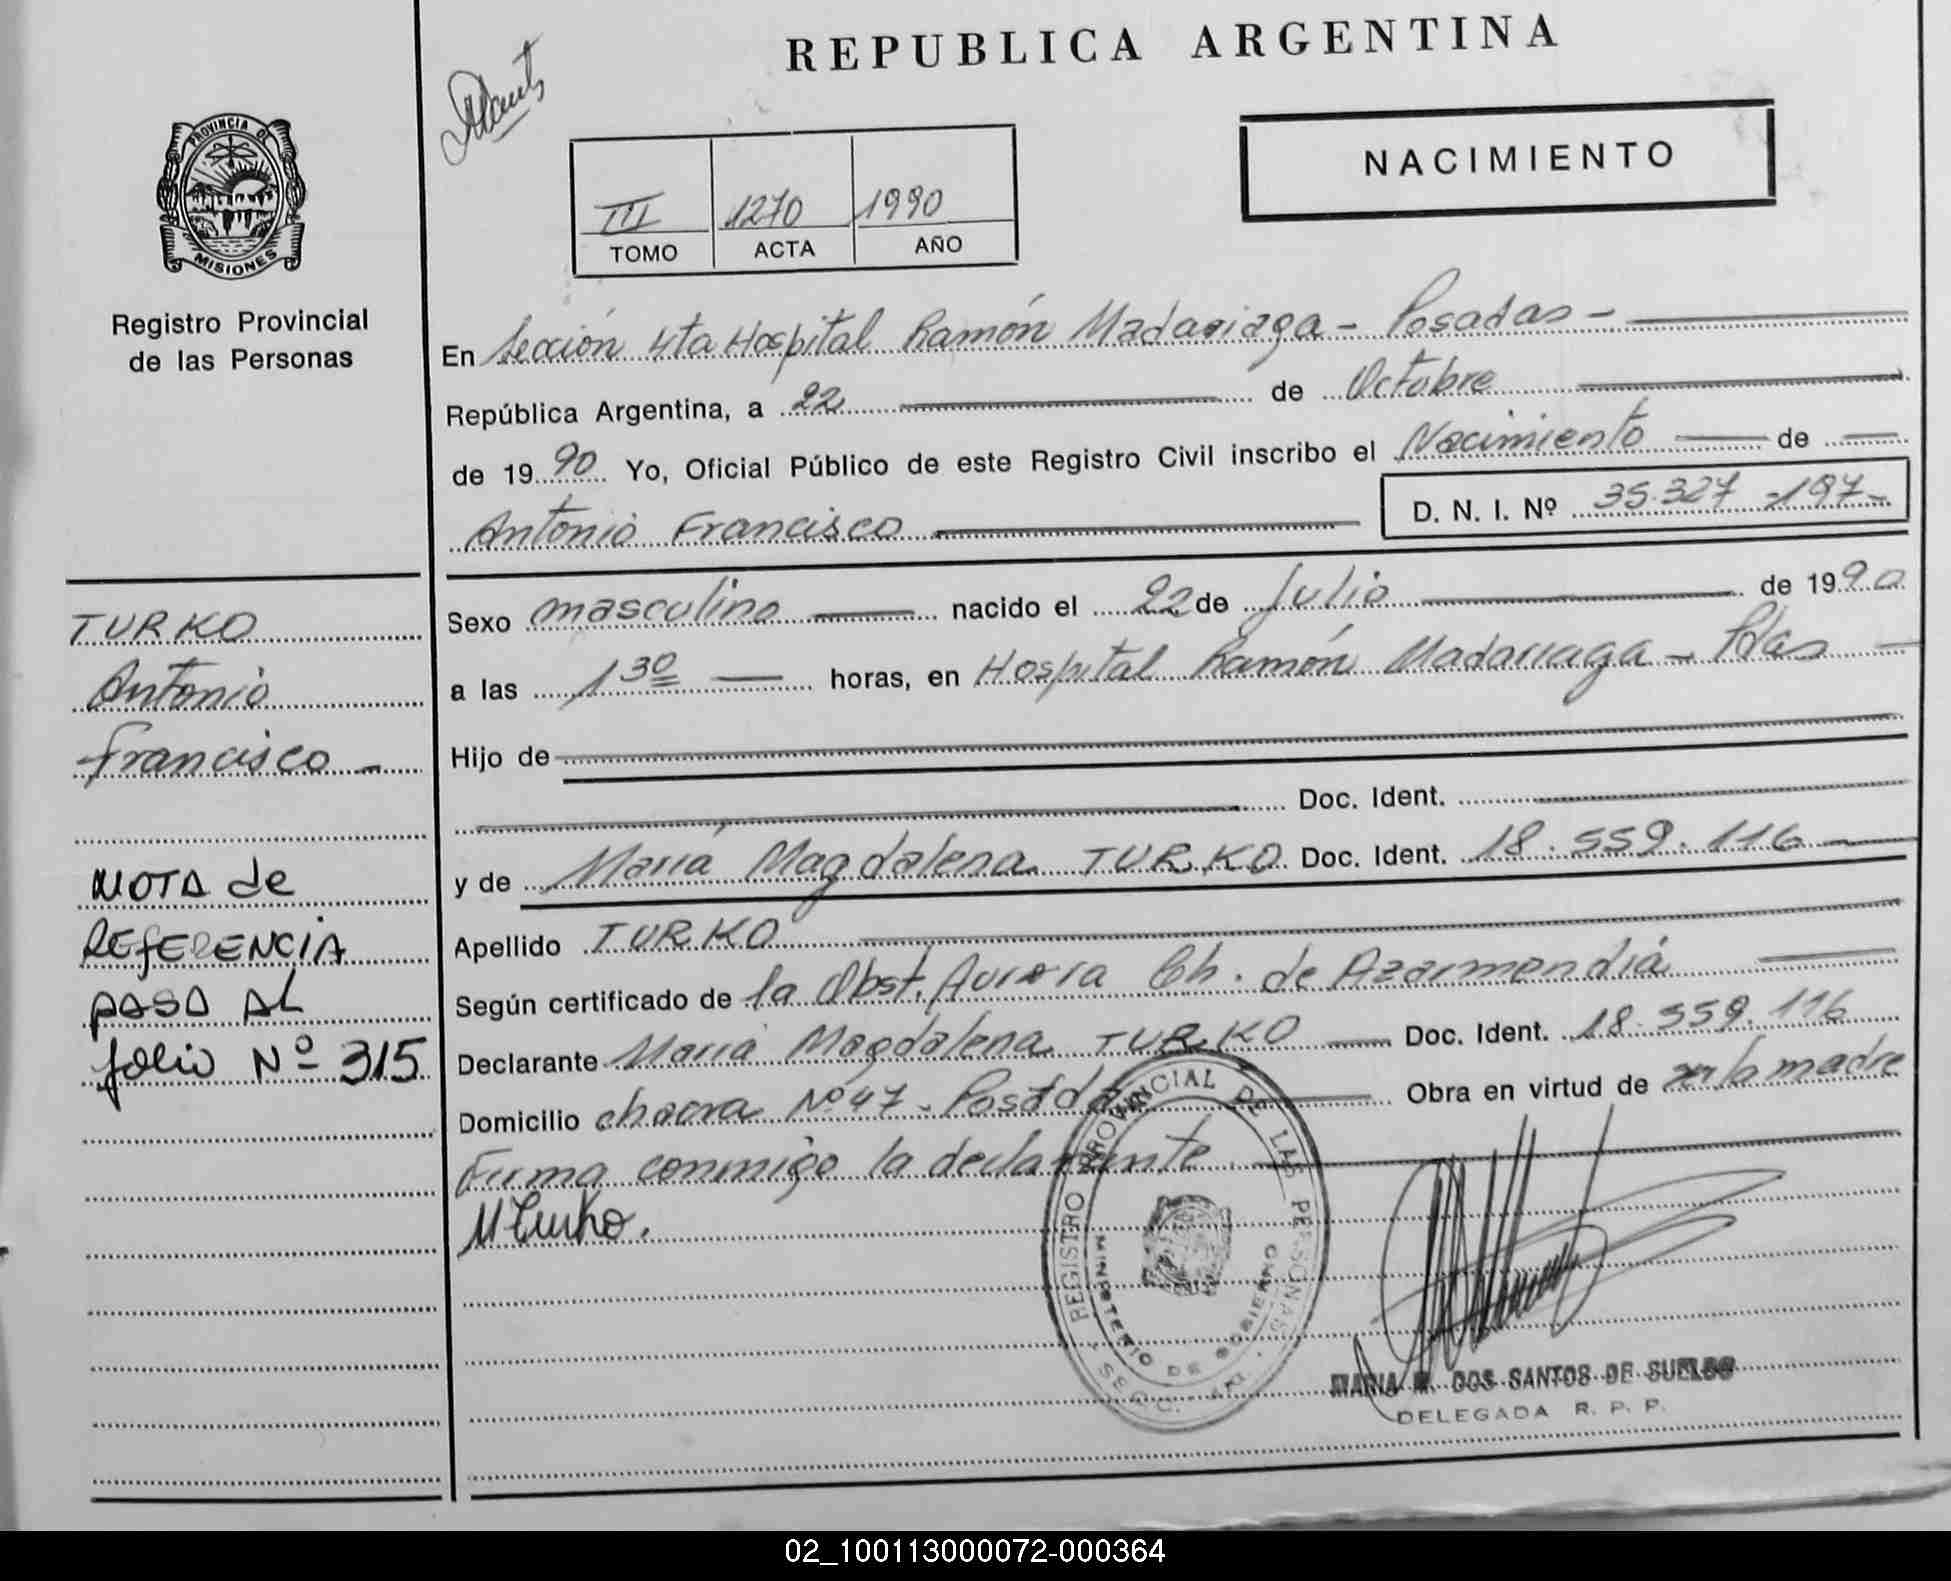 REPUBLICA ARGENTINA
NACIMIENTO
III 1270 1990
TOMO ACTA AÑO
PROVINCIA DE MISIONES
Registro Provincial
de las Personas
En Sección 4ta Hospital Ramón Madariaga - Posadas -
República Argentina, a 22 de Octubre
de 1990 Yo, Oficial Público de este Registro Civil inscribo el Nacimiento de
Antonio Francisco D. N. I. Nº 35.327.197-
TURKO
Antonio
Francisco -
NOTA de
REFERENCIA
PASO AL
folio Nº 315
Sexo masculino nacido el 22 de Julio de 1990
a las 1 30 horas, en Hospital Ramón Madariaga - Pdas
Hijo de
Doc. Ident.
y de María Magdalena TURKO Doc. Ident. 18.559.116
Apellido TURKO
Según certificado de la Obst. Aurora Ch. de Azarmendiá
Declarante María Magdalena TURKO Doc. Ident. 18.559.116
Domicilio chacra Nº 47 - Posadas Obra en virtud de la madre
Firma conmigo la declarante
M Turko.
REGISTRO PROVINCIAL DE LAS PERSONAS
MINISTERIO DE GOBIERNO
SECC. 4ta.
MARIA DOS SANTOS DE SUELDO
DELEGADA R. P. P.
02_100113000072-000364